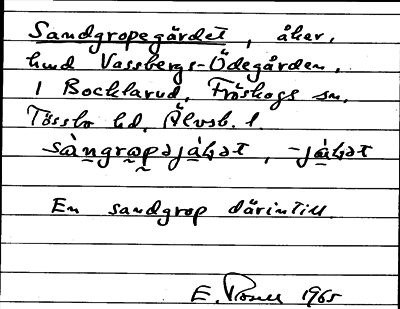 Sandgropegärdet, åker,
hmd Vassbergs-Ödegården,
i Bocklarud, Fröskogs sn,
Tössbo hd, Älvsb. l.
sàngrɷpəjáḷət, -jáḷət
En sandgrop därintill.
E. 1965